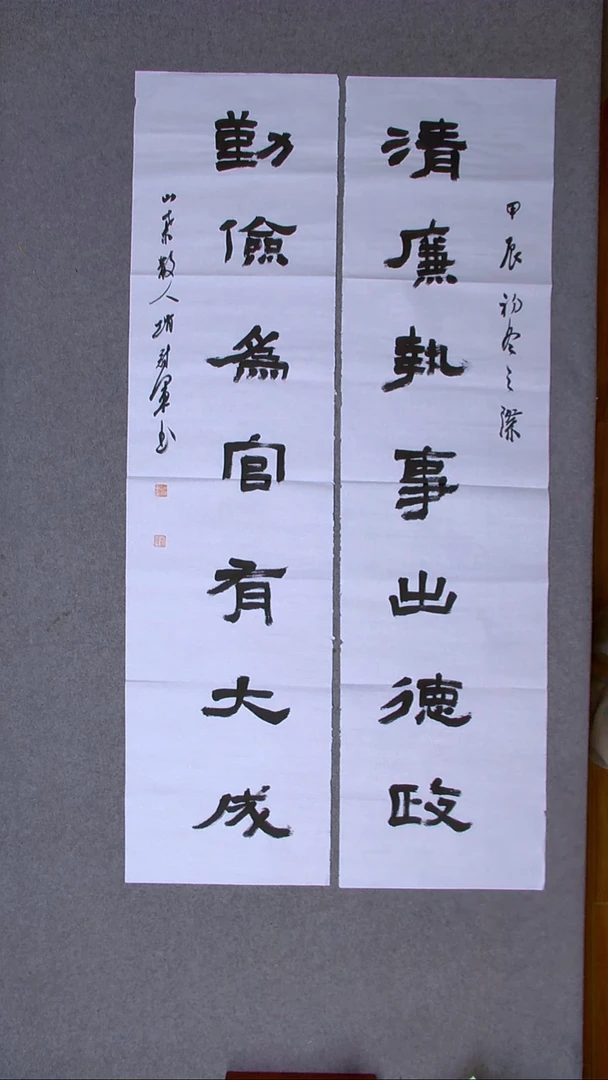 甲辰初冬之際
清廉執事出德政
勤儉為官有大成
散人
書